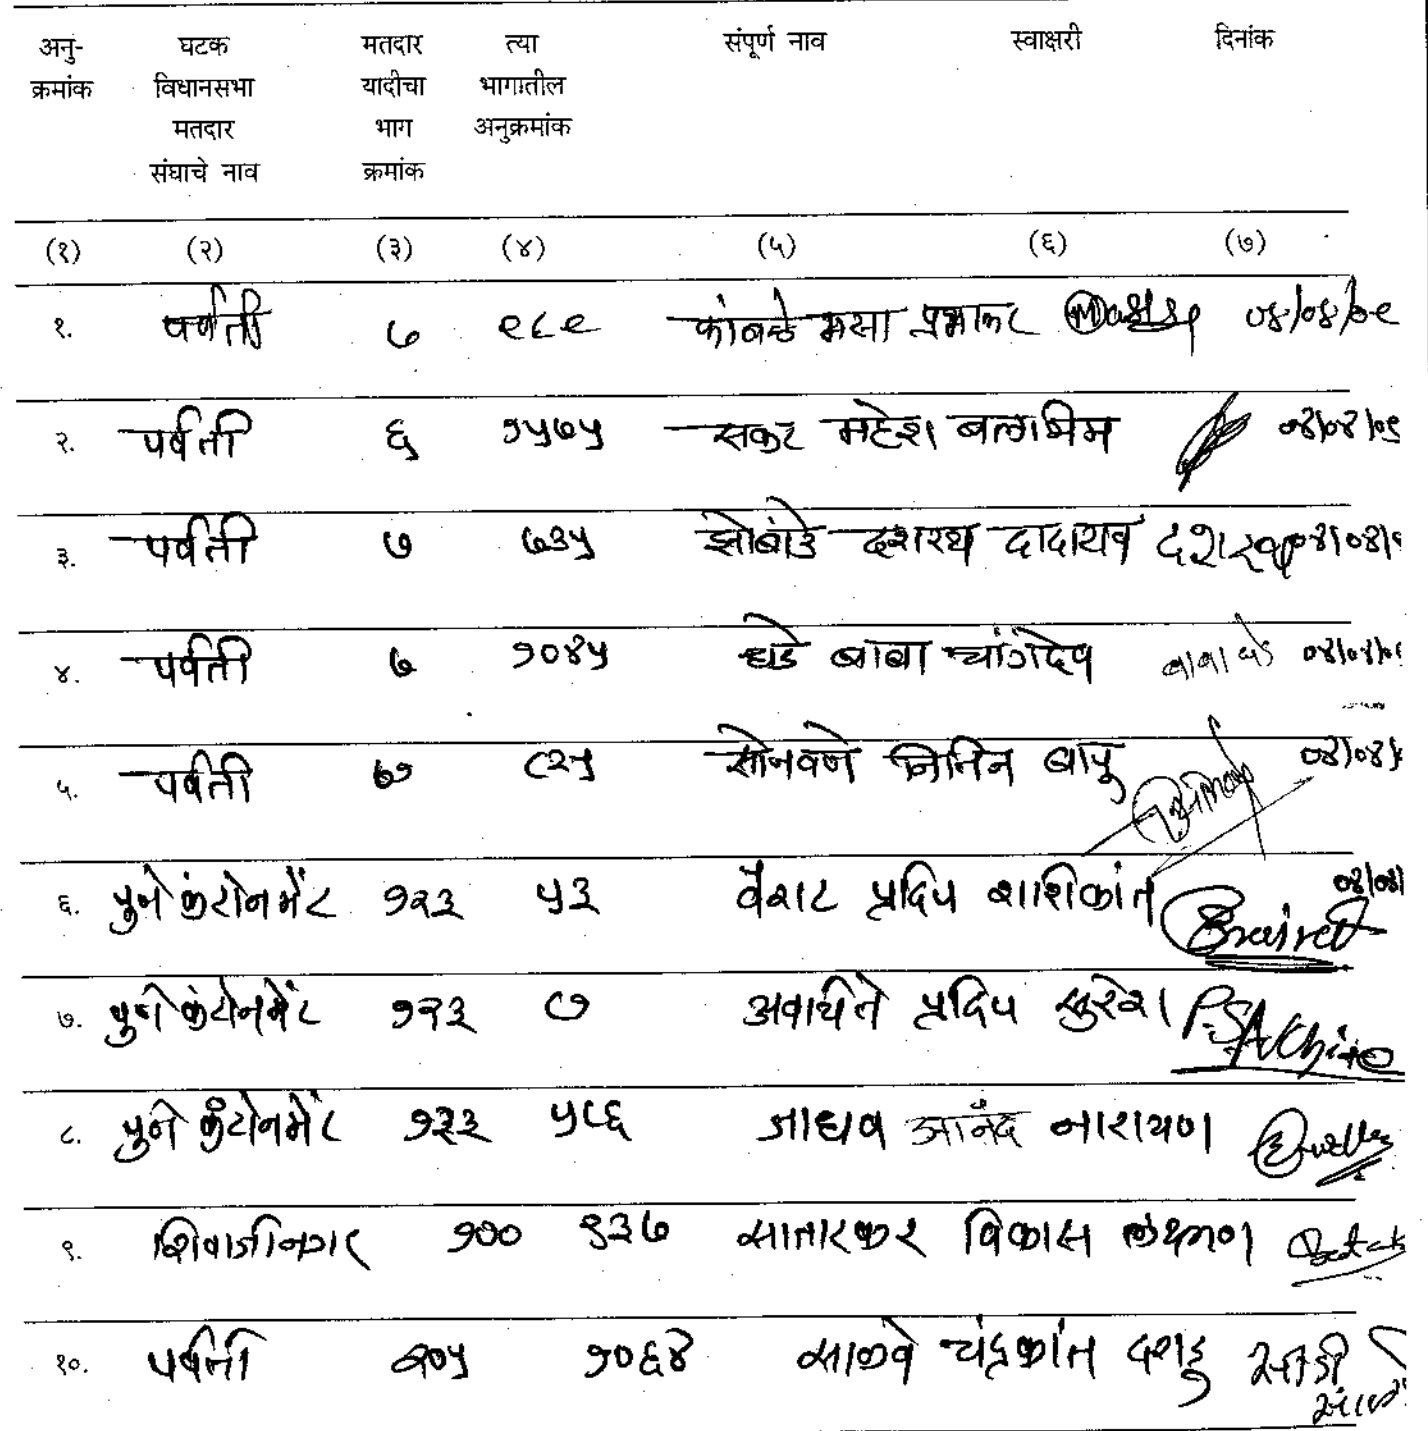 अनु- घटक मतदार त्या संपूर्ण नाव स्वाक्षरी दिनांक
क्रमांक विधानसभा यादीचा भागातील
मतदार भाग अनुक्रमांक
संघाचे नाव क्रमांक
(१) (२) (३) (४) (५) (६) (७)
१. पर्वती ७ ९८९ कांबळे प्रभाकर ०४/०४/०९
२. पर्वती ६ १५७५ सकट महेश बलभिम ०४/०४/०९
३. पर्वती ७ ७३५ झोंबाडे दशरथ दादाराव दशरथ ०४/०४/
४. पर्वती ७ १०४५ घडे बाबा चांगदेव बाबा घडे ०४/०४/०९
५. पर्वती ७ ८२५ सोनवणे नितिन बापु ०४/०४/
६. पुणे कंटोनमेंट १२३ ५३ वैराट प्रदिप शशिकांत ०४/०४/
७. पुणे कंटोनमेंट १२३ ८७ प्रदिप सुरेश
८. पुणे कंटोनमेंट १३३ ५८६ जाधव आनंद नारायण
९. शिवाजीनगर १७० ९३७ सातारकर विकास लक्ष्मण
१०. पर्वती २०५ १०६४ साळवे चंद्रकांत दगडु